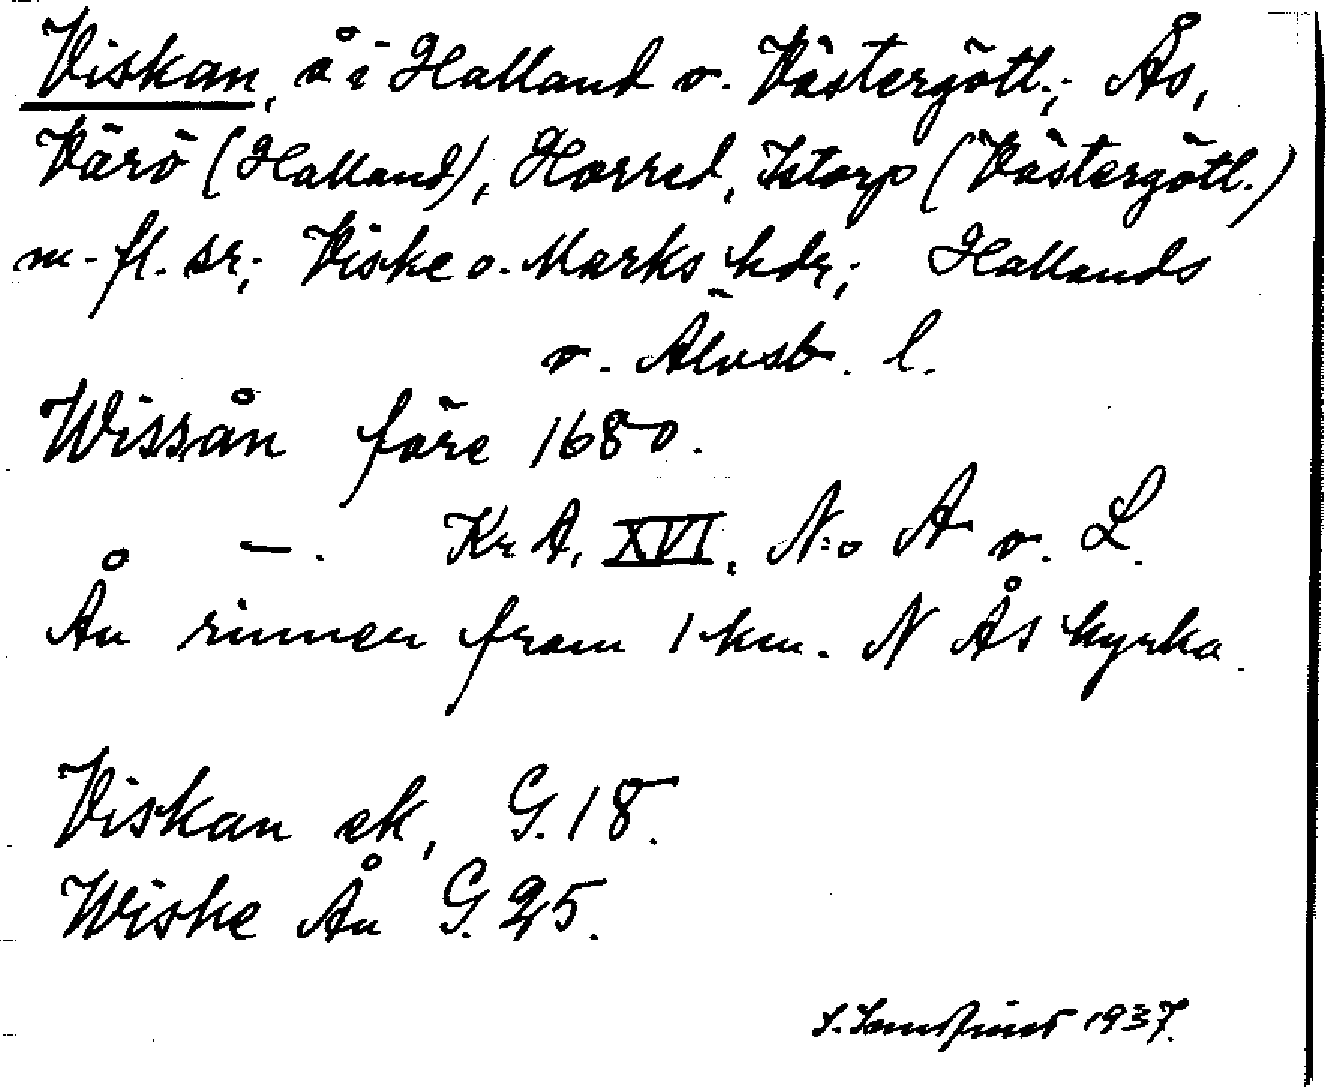 Viskan, å i Halland o. Västergötl.; Ås,
Värö (Halland), Horred, Istorp (Västergötl.)
m. fl. sr; Viske o. Marks hdr; Hallands
o. Älvsb. l.
Wissån före 1680.
— . KrA, XVI, N:o A o. L.
Ån rinner fram 1 km. N Ås kyrka.
Viskan ek, G. 18.
Wiske Ån G. 25.
1937.